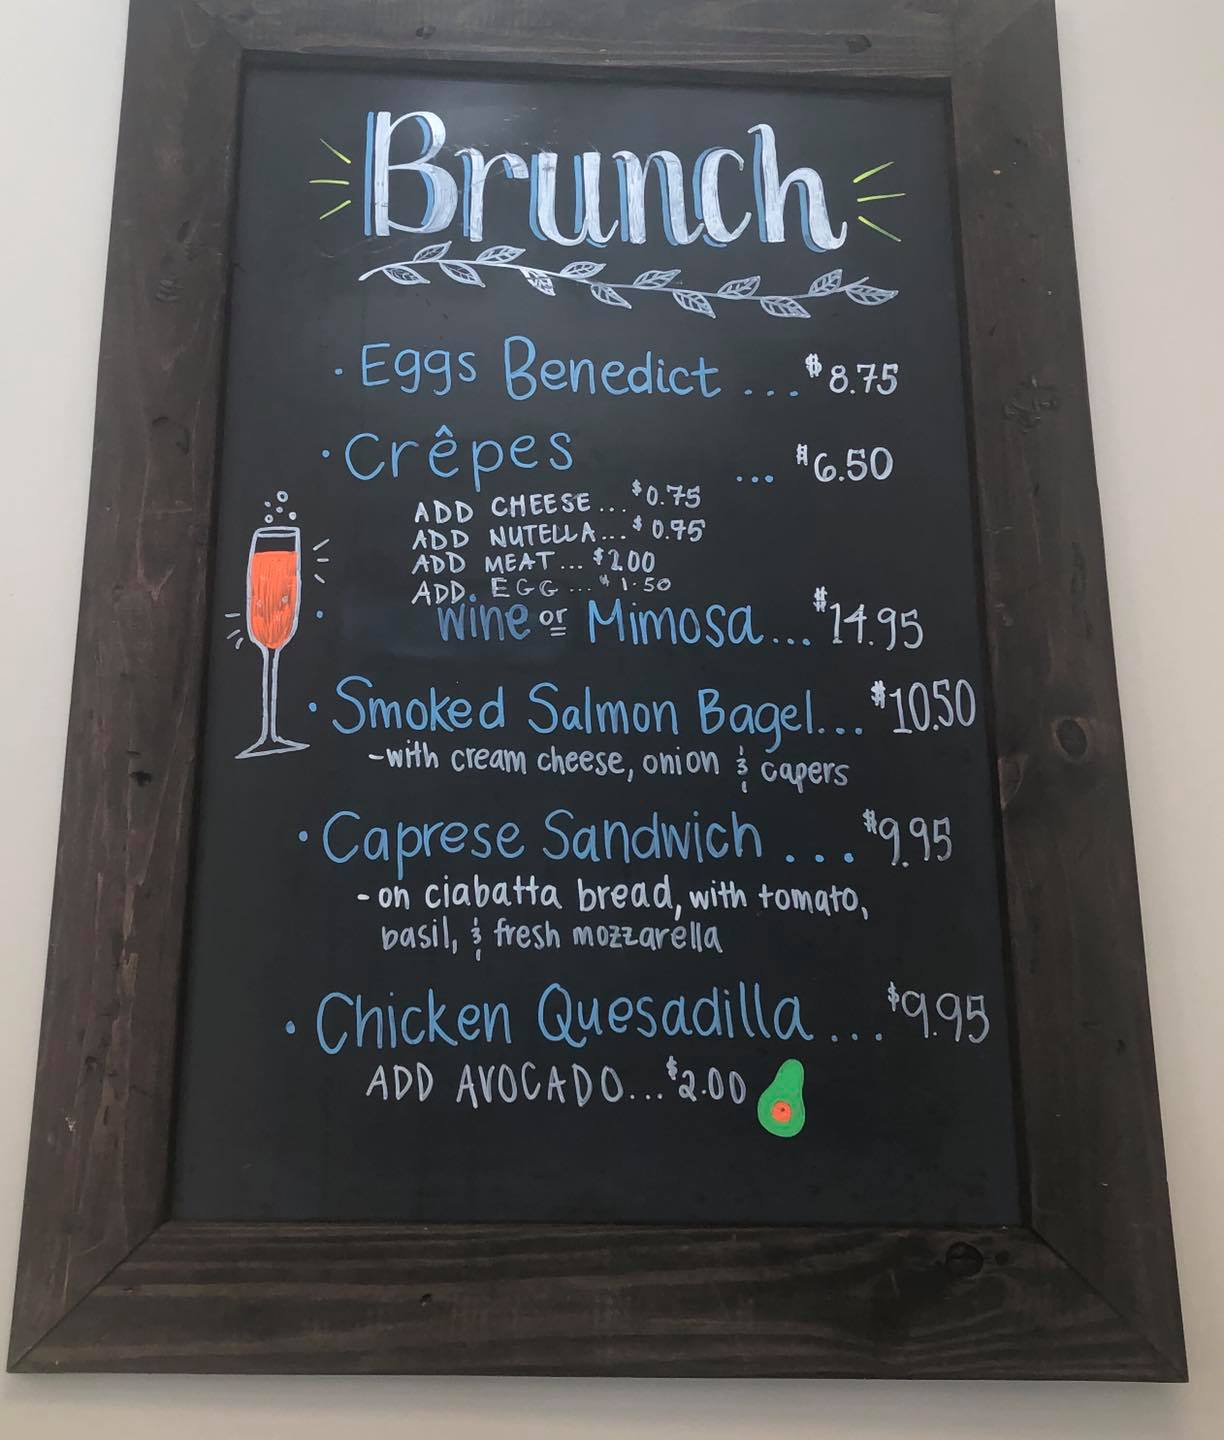 Brunch
· Eggs Benedict ... $8.75
· Crêpes ... $6.50
ADD CHEESE ... $0.75
ADD NUTELLA... $0.75
ADD MEAT... $2.00
ADD EGG ... $1.50
· Wine or Mimosa... $14.95
· Smoked Salmon Bagel... $10.50
-with cream cheese, onion & capers
· Caprese Sandwich ... $9.95
- on ciabatta bread, with tomato,
basil, & fresh mozzarella
· Chicken Quesadilla ... $9.95
ADD AVOCADO... $2.00